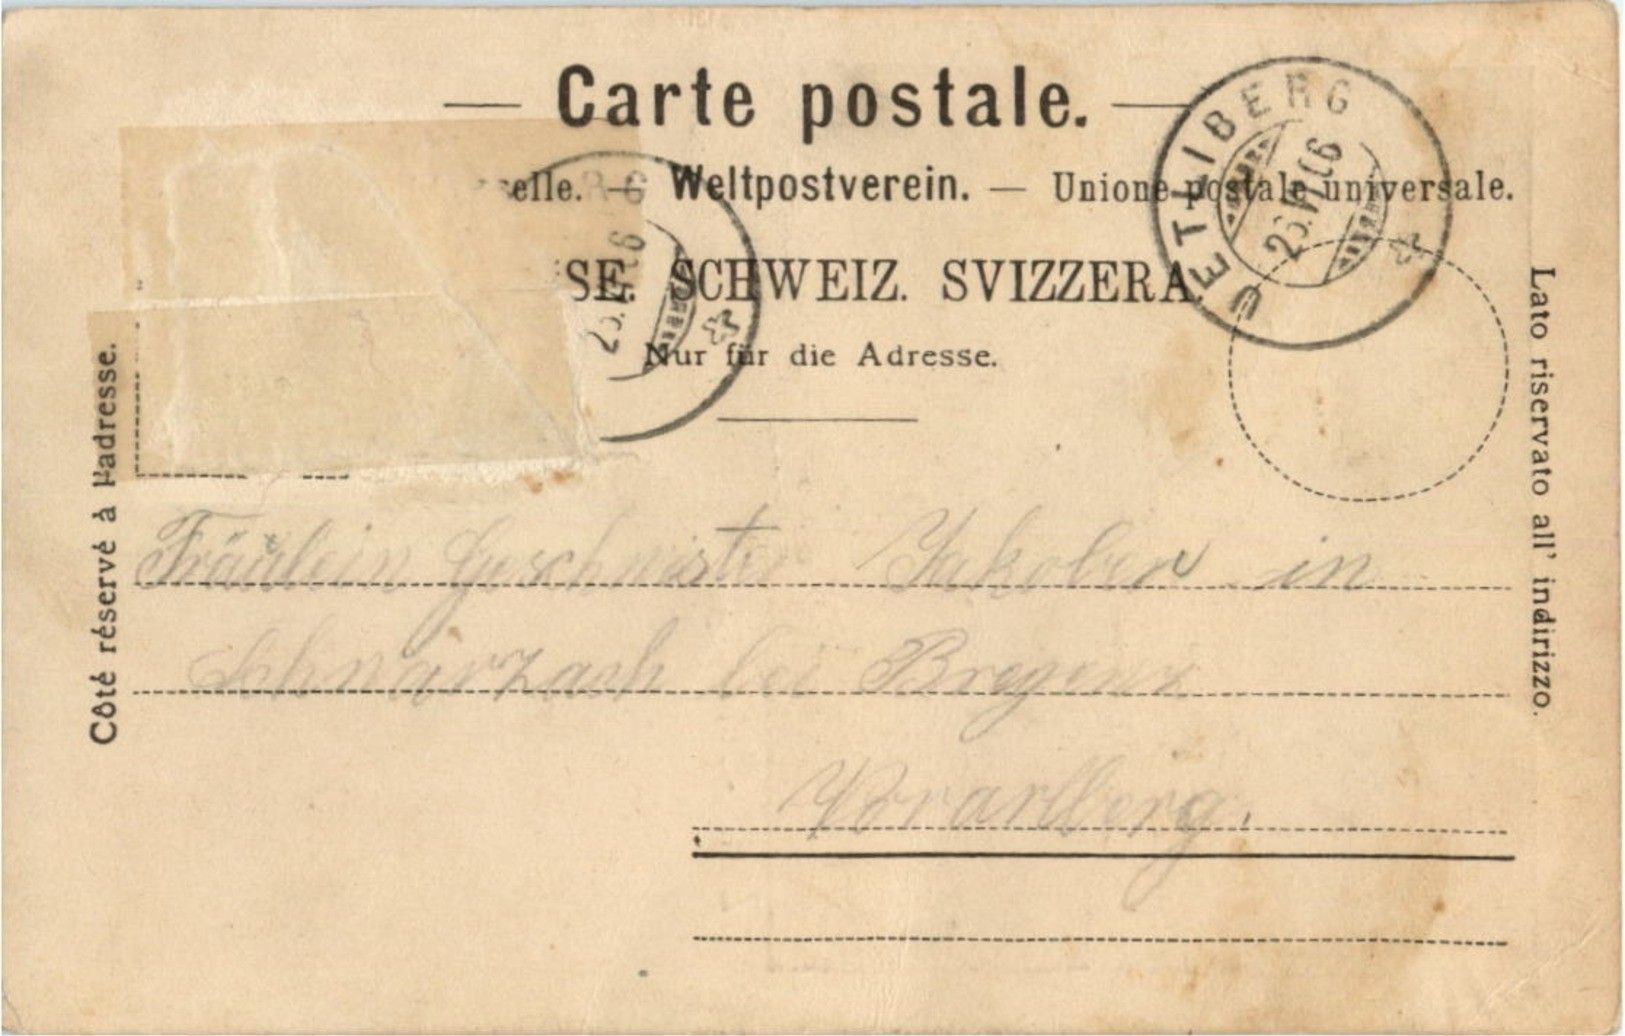 — Carte postale. —
elle. — Weltpostverein. — Unione postale universale.
SE. SCHWEIZ. SVIZZERA.
Nur für die Adresse.
UETLIBERG
RG
Côté réservé à l'adresse.
Lato riservato all' indirizzo.
Fräulein Geschwister Jakober in
Schwarzach bei Bregenz
Vorarlberg.